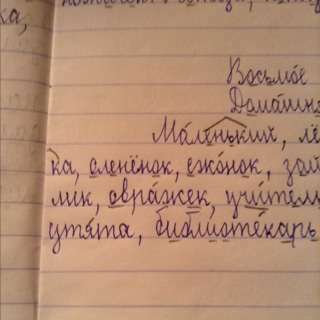 ка,
Восьмо́е
Дома́шн
Ма́ленький, лё
ка, оленёнок, ежо́нок, зай
лик, овра́жек, учи́тель
утя́та, библиоте́карь